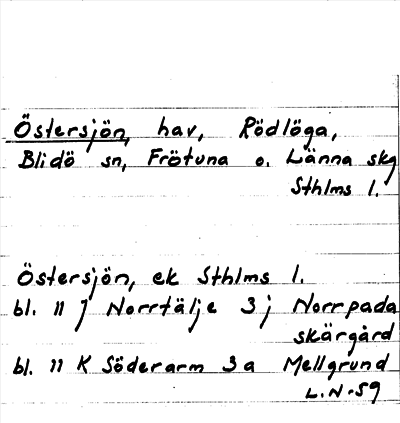 Östersjön, hav, Rödlöga,
Blidö sn, Frötuna o. Länna skg
Sthlms l.
Östersjön, ek Sthlms l.
bl. 11 J Norrtälje 3 j Norrpada
skärgård
bl. 11 K Söderarm 3 a Mellgrund
L.N-59